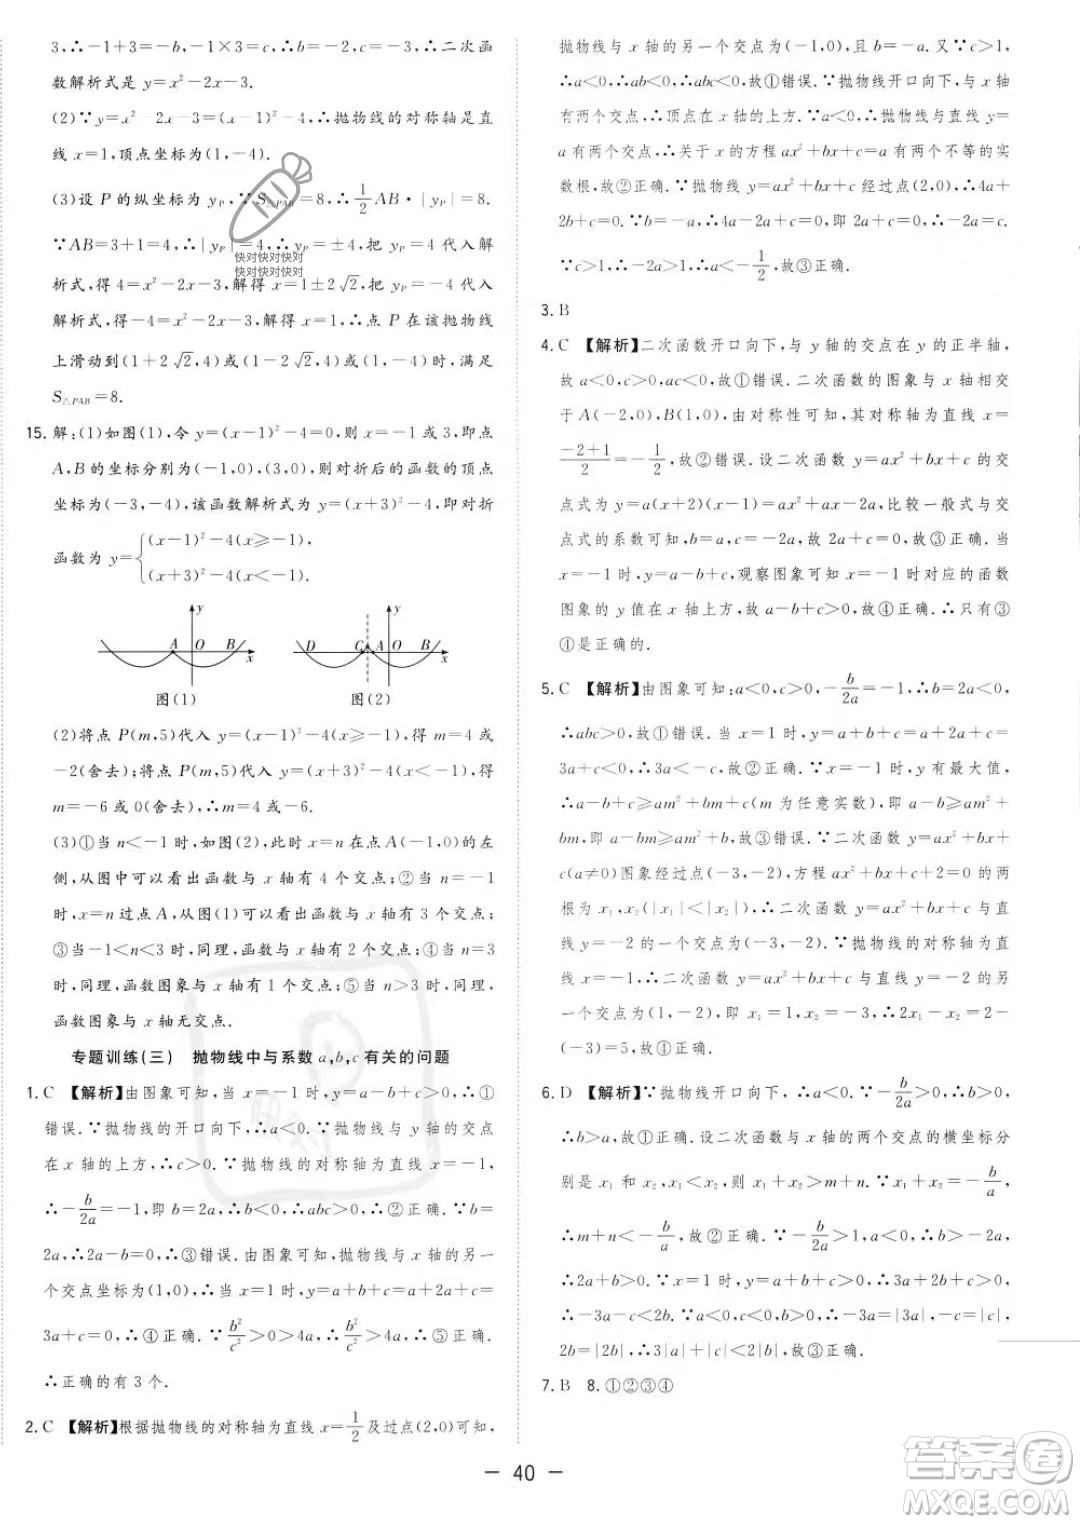 3,∴－1+3=－b,－1×3=c,∴b=－2,c=－3,∴二次函
数解析式是 y=x²－2x－3.
(2)∵y=x²－2x－3=(x－1)²－4,∴抛物线的对称轴是直
线 x=1,顶点坐标为(1,－4).
(3)设 P 的纵坐标为 y_P,∵S△PAB=8,∴1/2 AB·|y_P|=8.
∵AB=3+1=4,∴|y_P|=4,∴y_P=±4,把 y_P=4 代入解
析式,得 4=x²－2x－3,解得 x=1±2√2,把 y_P=－4 代入
解析式,得－4=x²－2x－3,解得 x=1,∴点 P 在该抛物线
上滑动到(1+2√2,4)或(1－2√2,4)或(1,－4)时,满足
S△PAB=8.
15. 解:(1)如图(1),令 y=(x－1)²－4=0,则 x=－1 或 3,即点
A,B 的坐标分别为(－1,0),(3,0),则对折后的函数的顶点
为(－3,－4),该函数解析式为 y=(x+3)²－4,即对折
函数为 y={(x－1)²－4(x≥－1),
(x+3)²－4(x<－1).
y A O B x
y D C A O B x
图(1) 图(2)
(2)将点 P(m,5)代入 y=(x－1)²－4,解得 m=4 或
－2(舍去);将点 P(m,5)代入 y=(x+3)²－4,解得
m=－6 或 0(舍去),∴m=4 或－6.
(3)①当 n<－1 时,如图(2),此时 x=n 在点 A 的左
侧,从图中可以看出函数与 x 轴有 4 个交点;②当 n=－1
时,x=n 过点 A,从图(1)可以看出函数与 x 轴有 3 个交点;
③当－1<n<3 时,同理,函数与 x 轴有 2 个交点;④当 n=3
时,同理,函数图象与 x 轴有 1 个交点;⑤当 n>3 时,同理,
函数图象与 x 轴无交点.
专题训练(三) 抛物线中与系数 a,b,c 有关的问题
1. C 【解析】由图象可知,当 x=－1 时,y>0,∴a－b+c>0,∴①
错误.∵抛物线的开口向下,∴a<0.∵抛物线与 y 轴的交点
在 x 轴的上方,∴c>0.∵抛物线的对称轴为直线 x=－1,
∴－b/2a=－1,即 b=2a,∴b<0,∴abc>0,∴②正确.∵b=
2a,∴2a－b=0,∴③错误.由图象可知,抛物线与 x 轴的另一
个交点坐标为(1,0),∴当 x=1 时,y=a+b+c=a+2a+c=
3a+c=0,∴④正确.∵b²/c²>0>a,∴b²/c²>4a,∴⑤正确.
∴正确的有 3 个.
2. C 【解析】根据抛物线的对称轴为直线 x=1/2及过点(2,0)可知,
抛物线与 x 轴的另一个交点为(－1,0),b=－a.又∵c>1,
∴a<0,∴b>0,∴abc<0,故①错误.∵抛物线开口向下,与 x
轴有两个交点,∴顶点在 x 轴的上方.∵a<0,∴抛物线与直线 y=
a 有两个交点,∴关于 x 的方程 ax²+bx+c=a 有两个不等的实
数根,故②正确.∵抛物线 y=ax²+bx+c 经过点(2,0),∴4a+
2b+c=0.∵b=－a,∴4a－2a+c=0,即 2a+c=0,∴－2a=c.
∵c>1,∴－2a>1,∴a<－1/2,故③正确.
3. B
4. C 【解析】二次函数开口向下,与 y 轴的交点在 y 的正半轴,
故 a<0,c>0,ac<0,故①错误.二次函数的图象与 x 轴相交
于 A(－2,0),B(1,0),由对称性可知,其对称轴为直线 x=
(－2+1)/2=－1/2,故②错误.设二次函数 y=ax²+bx+c 的交
点式为 y=a(x+2)(x－1)=ax²+ax－2a,比较一般式与交
点式的系数可知,b=a,c=－2a,故 2a+c=0,故③正确.当
x=－1 时,y=a－b+c,观察图象可知 x=－1 时对应的函数
图象的 y 值在 x 轴上方,故 a－b+c>0,故④正确.∴只有③
④是正确的.
5. C 【解析】由图象可知:a<0,c>0,－b/2a=－1,∴b=2a<0,
∴abc>0,故①正确.当 x=1 时,y=a+b+c=a+2a+c=
3a+c<0,∴a+c<－2a,故②正确.∵x=－1 时,y 有最大值,
∴a－b+c≥am²+bm+c(m 为任意实数),即 a－b≥am²+
bm,即 a－bm≥am²+b,故③错误.∵二次函数 y=ax²+bx+
c(a≠0)图象经过点(－3,－2),方程 ax²+bx+c+2=0 的两
根为 x₁,x₂(|x₁|<|x₂|),∴二次函数 y=ax²+bx+c 与直
线 y=－2 的一个交点为(－3,－2).∵抛物线的对称轴为直线
x=－1,∴二次函数 y=ax²+bx+c 与直线 y=－2 的另一个
交点为(1,－2),即 x₁=1,x₂=－3,∴2x₁－x₂=2－
(－3)=5,故④正确.
6. D 【解析】∵抛物线开口向下,∴a<0.∵－b/2a>－1/2,
∴b>a,故①正确.设二次函数与 x 轴的两个交点的横坐标分
别是 x₁ 和 x₂,x₁>m,x₂>n,则 x₁+x₂>m+n.∵x₁+x₂=－b/a,
∴m+n<－b/a,故②正确.∵－b/2a>1,a<0,∴b>－2a,
∴2a+b>0.∵当 x=－1 时,y>0,∴a－b+c>0,∴3a+c>0,
∴－3a－c<2b.∵a<0,c<0,b>0,∴－3a=|3a|,－c=|c|,
2b=|2b|,∴|3a|+|c|<2|b|,故③正确.
7. B 8. ①②③④
— 40 —
快对快对快对
快对快对快对
答案圈
MXQE.COM